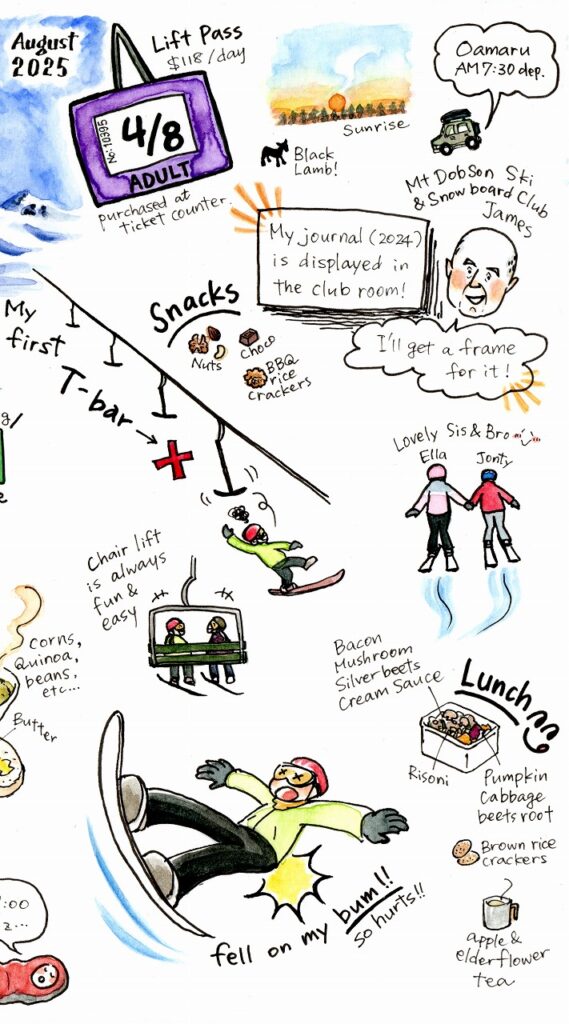 August
2025
Lift Pass
$118/day
No: 10395
4/8
ADULT
purchased at
ticket counter.
Sunrise
Black
Lamb!
Oamaru
AM 7:30 dep.
Mt Dobson Ski
& Snowboard Club
James
My journal (2024)
is displayed in
the club room!
I'll get a frame
for it!
My
first
T-bar
Snacks
Nuts
Choco
BBQ
rice
crackers
Lovely Sis & Bro
Ella
Jonty
Chair lift
is always
fun &
easy
Corns,
Quinoa,
beans,
etc...
Butter
Bacon
Mushroom
Silverbeets
Cream Sauce
Lunch
Risoni
Pumpkin
Cabbage
beets root
Brown rice
crackers
apple &
elderflower
tea
fell on my bum!!
so hurts!!
:00
z...